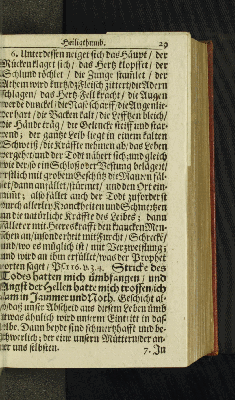 Heiligthumb. 29
6. Unterdessen neiget sich das Häupt / der
Rücken klaget sich / das Hertz klopffet / der
Schlund röchlet / die Zunge stamlet / der
Athem wird kurtz / das Fleisch zittert / die Adern
schlagen / das Hertz Fell kracht / die Augen
werde dunckel / die Naß scharff / die Augenlie-
der hart / die Backen kalt / die Lefftzen bleich /
die Händ träg / der Gelenck steiff und star-
rend; der gantze Leib liegt in einem kalten
Schweiß / die Kräffte nehmen ab / das Leben
vergehet / und der Todt nähert sich; und gleich
wie der so ein Schloß oder Vestung belägert /
erstlich mit grobem Geschütz die Mauren fäl-
let / dann anfället / stürmet / und den Ort ein-
nimt; also fället auch der Todt zuforderst
durch allerley Kranckheiten und Schmertzen
an die natürliche Kräffte des Leibes; dann
fället er mit Heereskrafft den krancken Men-
schen an / insonderheit mit Furcht / Schreck /
und / wo es müglich ist / mit Verzweifflung;
und wird an ihm erfüllet / was der Prophet
vorten saget / Ps. 116. v. 3. 4. Stricke des
Todes hatten mich umbfangen / und
Angst der Hellen hatte mich troffen / ich
kam in Jammer und Noth. Geschicht al-
so / daß unser Abscheid aus diesem Leben umb
etwas ähnlich wird unserm Eintritt in das-
selbe. Dann beyde sind schmertzhafft und be-
schwerlich; der eine unsern Müttern / der an-
der uns selbsten.
7. In